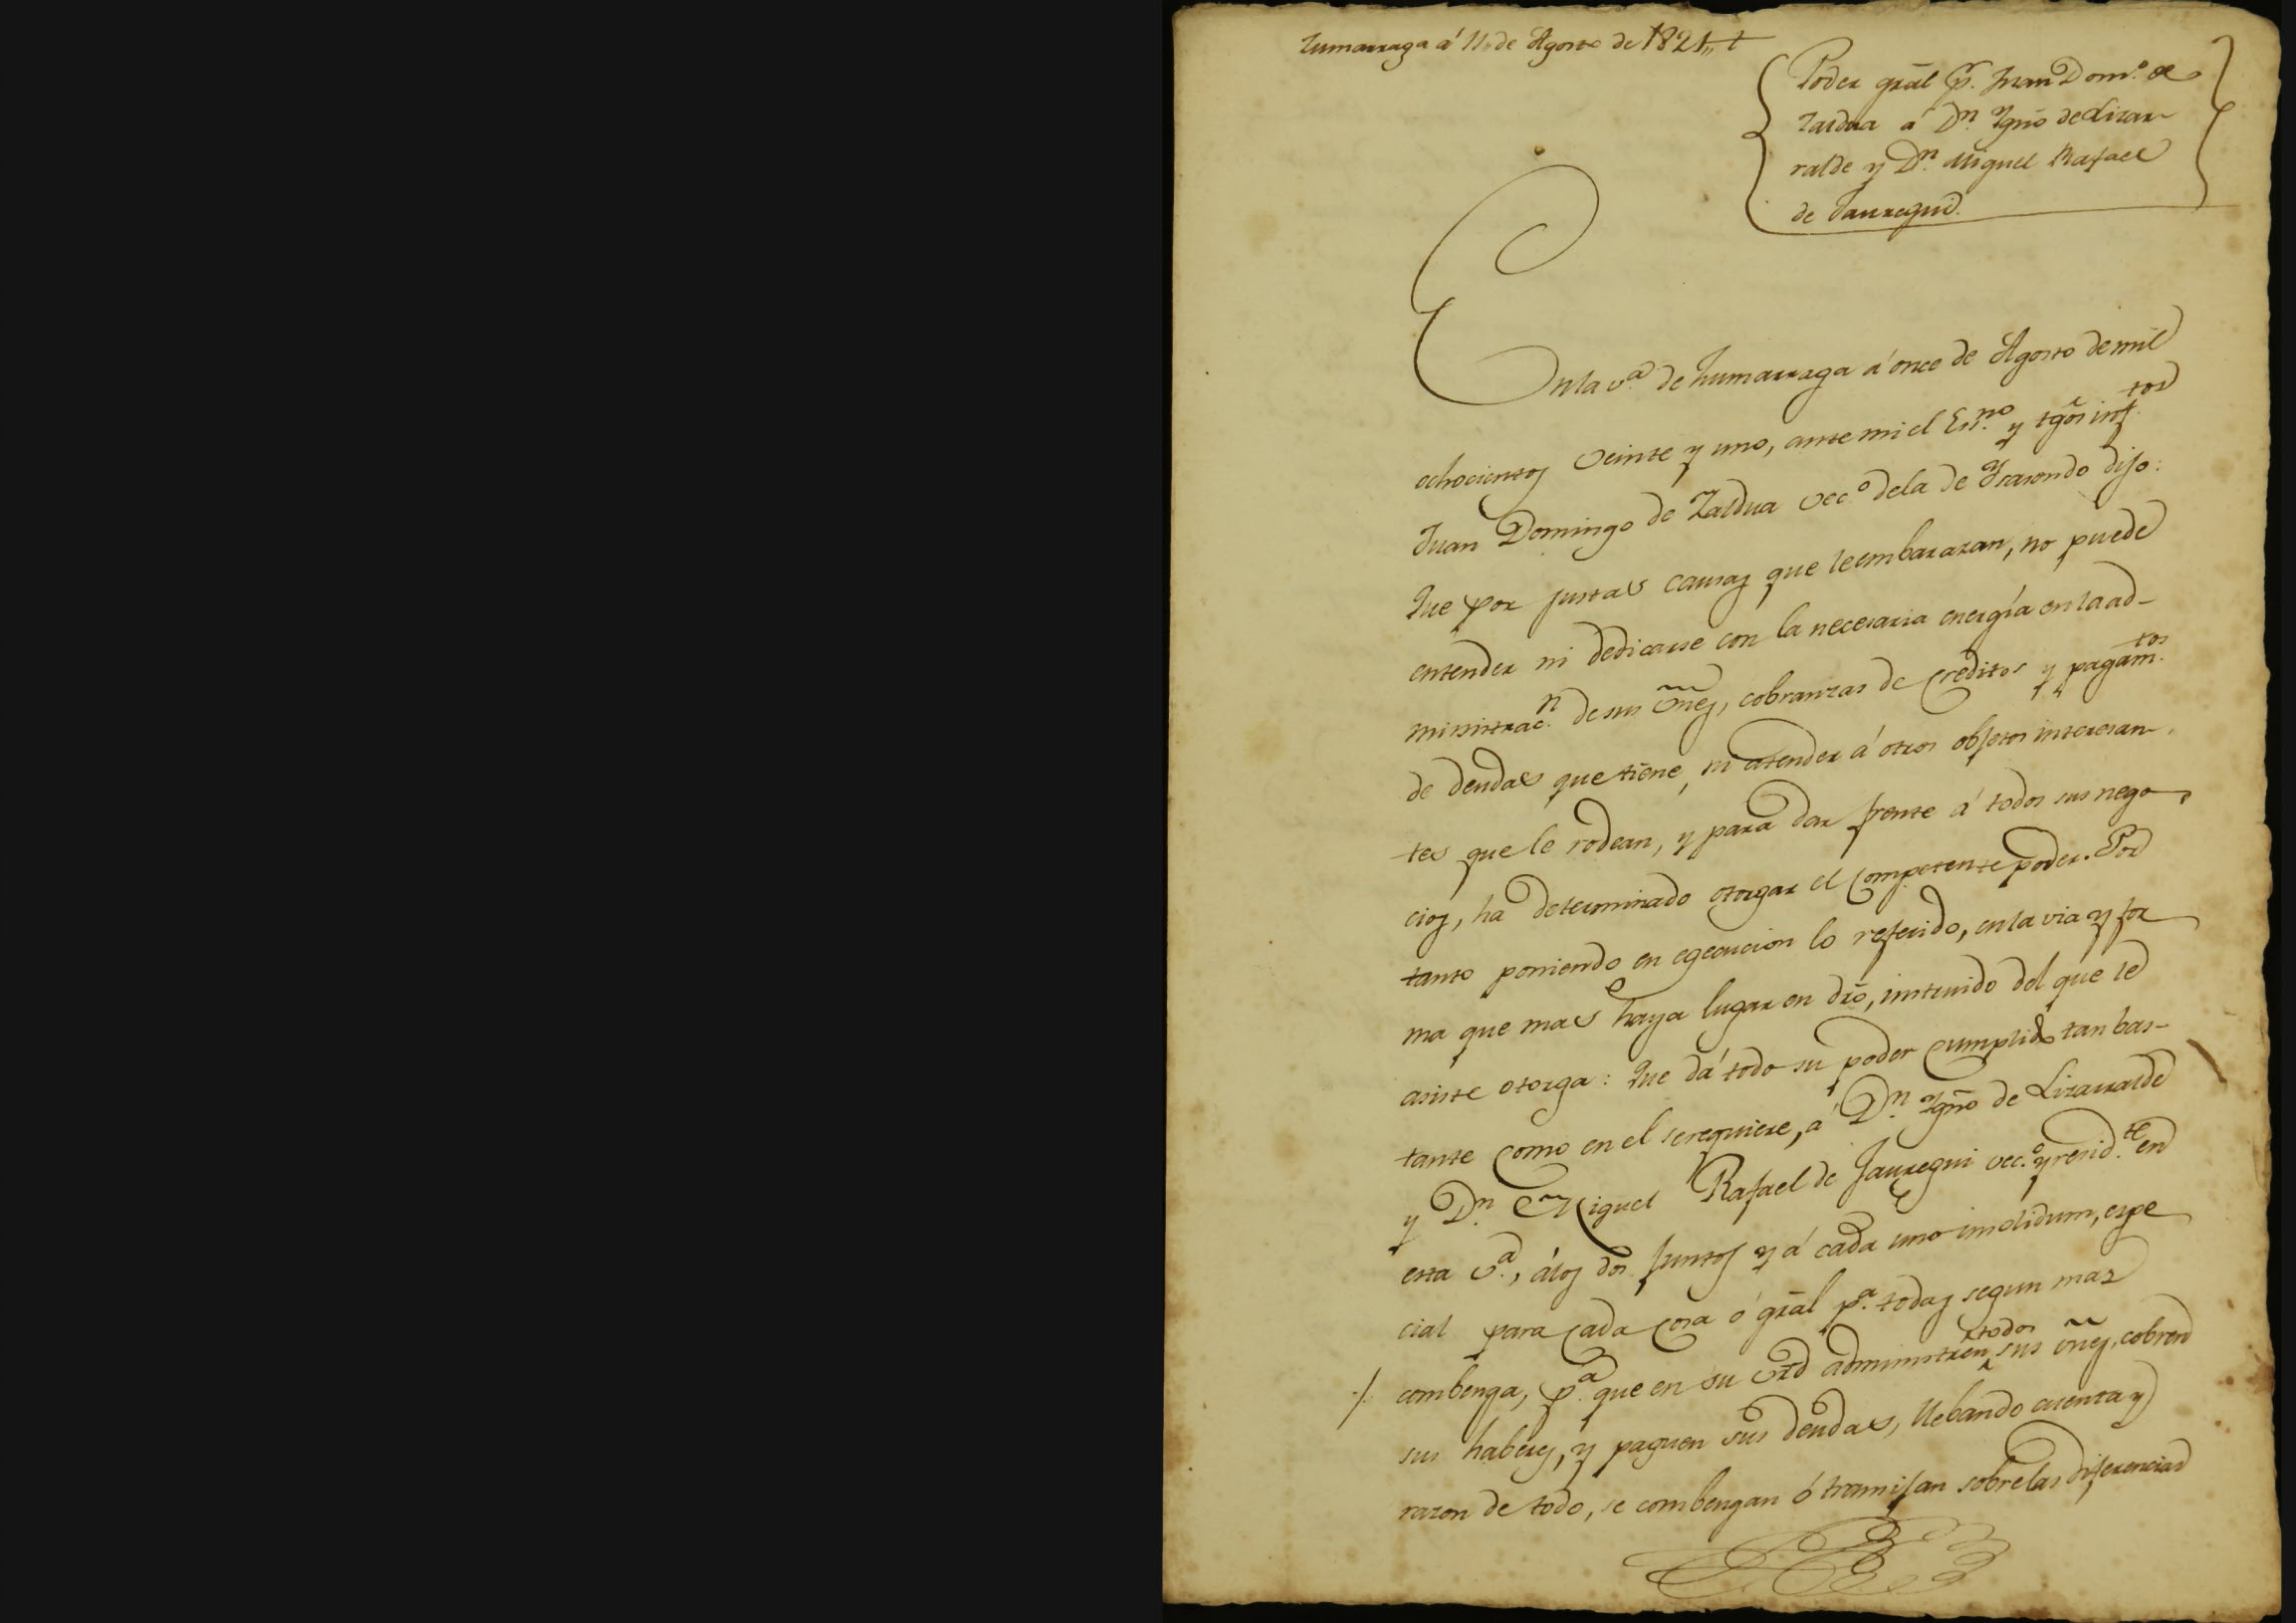 Zumarraga á 11 de Agosto de 1821,,
Poder grãl p.r Juan Dom.o de
Zaldua á Dn. Ygño de Lizar-
ralde y Dn. Miguel Rafael
de Jauregui.
En la v.a de Zumarraga á once de Agosto de mil
ochocientos veinte y uno, ante mi el Es.no y tgõs inf.tos
Juan Domingo de Zaldua vec.o de la de Ysasondo dijo:
Que por justas causas que le embarazan, no puede
entender ni dedicarse con la necesaria energía en la ad-
ministrac.n de sus vñes, cobranzas de creditos y pagam.tos
de deudas que tiene, ni atender á otros objetos interesan-
tes que le rodean, y para dar frente á todos sus nego
cios, ha determinado otorgar el competente poder. Por
tanto poniendo en egecucion lo referido, en la via y for
ma que mas haya lugar en dro, instruido del que le
asiste otorga: Que dá todo su poder cumplido tan bas-
tante como en el se requiere, á Dn. Ygño de Lizarralde
y Dn. Miguel Rafael de Jauregui vec.o y resid.te en
esta v.a, á los dos juntos y á cada uno insolidum, espe
cial para cada cosa ó grãl p.a todas segun mas
combenga, p.a que en su vrd administren todos sus vñes, cobren
sus haberes, y paguen sus deudas, llebando cuenta y
razon de todo, se combengan ó transijan sobre las diferencias